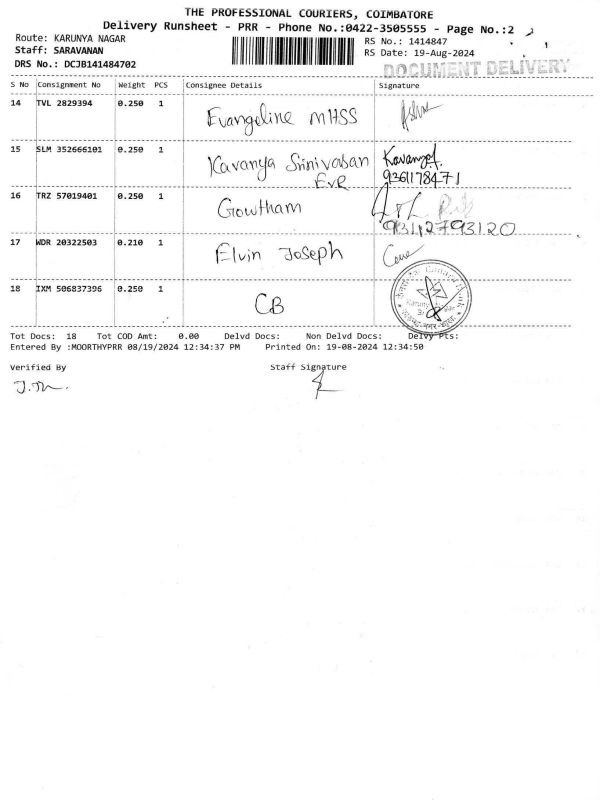 THE PROFESSIONAL COURIERS, COIMBATORE
Delivery Runsheet - PRR - Phone No.:0422-3505555 - Page No.:2
Route: KARUNYA NAGAR RS No.: 1414847
Staff: SARAVANAN RS Date: 19-Aug-2024
DRS No.: DCJB141484702 DOCUMENT DELIVERY
S No Consignment No Weight PCS Consignee Details Signature
14 TVL 2829394 0.250 1 Evangeline MHSS
15 SLM 352666101 0.250 1 Kavanya Srinivasan
EVR
9361178471
16 TRZ 57019401 0.250 1 Gowtham
17 WDR 20322503 0.210 1 Elvin Joseph
18 IXM 506837396 0.250 1 CB
Canara Bank
Tot Docs: 18 Tot COD Amt: 0.00 Delvd Docs: Non Delvd Docs: Delvy Pts:
Entered By :MOORTHYPRR 08/19/2024 12:34:37 PM Printed On: 19-08-2024 12:34:50
Verified By Staff Signature